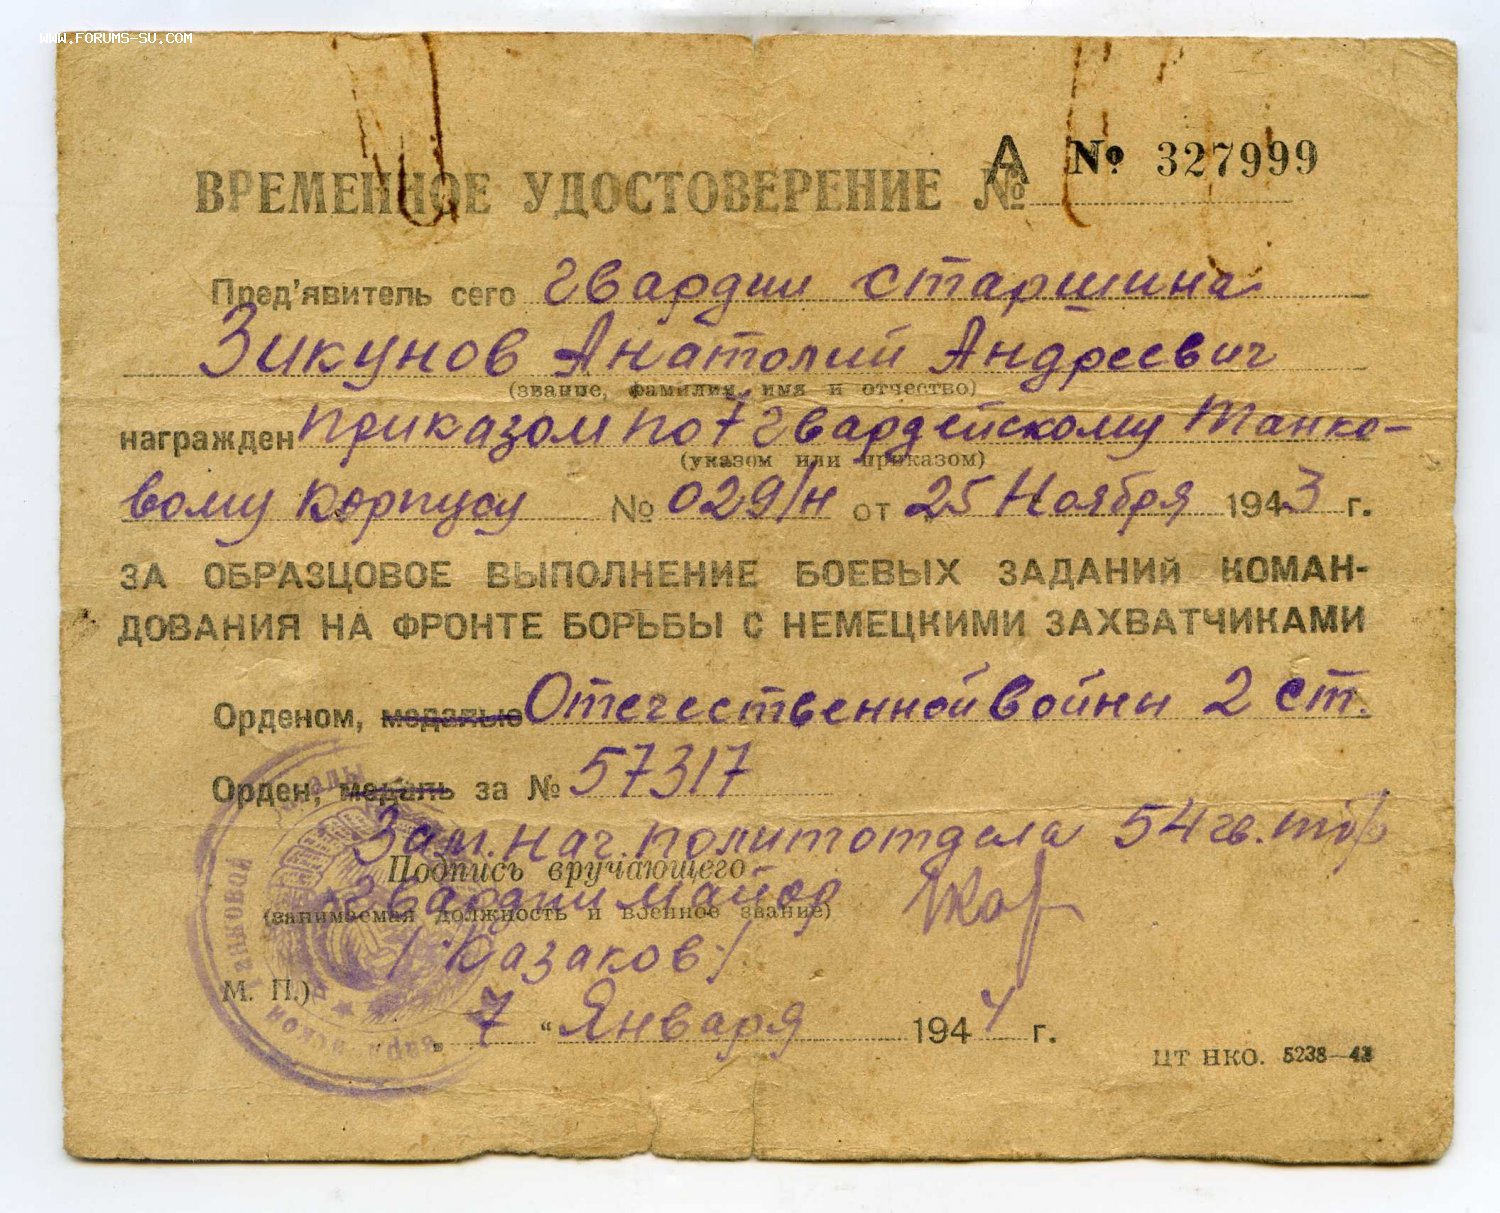 WWW.FORUMS-SU.COM
А № 327999
ВРЕМЕННОЕ УДОСТОВЕРЕНИЕ №
Пред'явитель сего гвардии старшина
Зикунов Анатолий Андреевич
(звание, фамилия, имя и отчество)
награжден приказом по 7 гвардейскому танко-
(указом или приказом)
вому корпусу № 029/н от 25 Ноября 1943 г.
ЗА ОБРАЗЦОВОЕ ВЫПОЛНЕНИЕ БОЕВЫХ ЗАДАНИЙ КОМАН-
ДОВАНИЯ НА ФРОНТЕ БОРЬБЫ С НЕМЕЦКИМИ ЗАХВАТЧИКАМИ
Орденом, медалью Отечественной Войны 2 ст.
Орден, медаль за № 57317
Зам. нач. политотдела 54 гв. тбр
Подпись вручающего
гвардии майор
(занимаемая должность и военное звание)
/Казаков/
М. П.)
„ 7 “ Января 1944 г.
ЦТ НКО. 5238—43
танковой